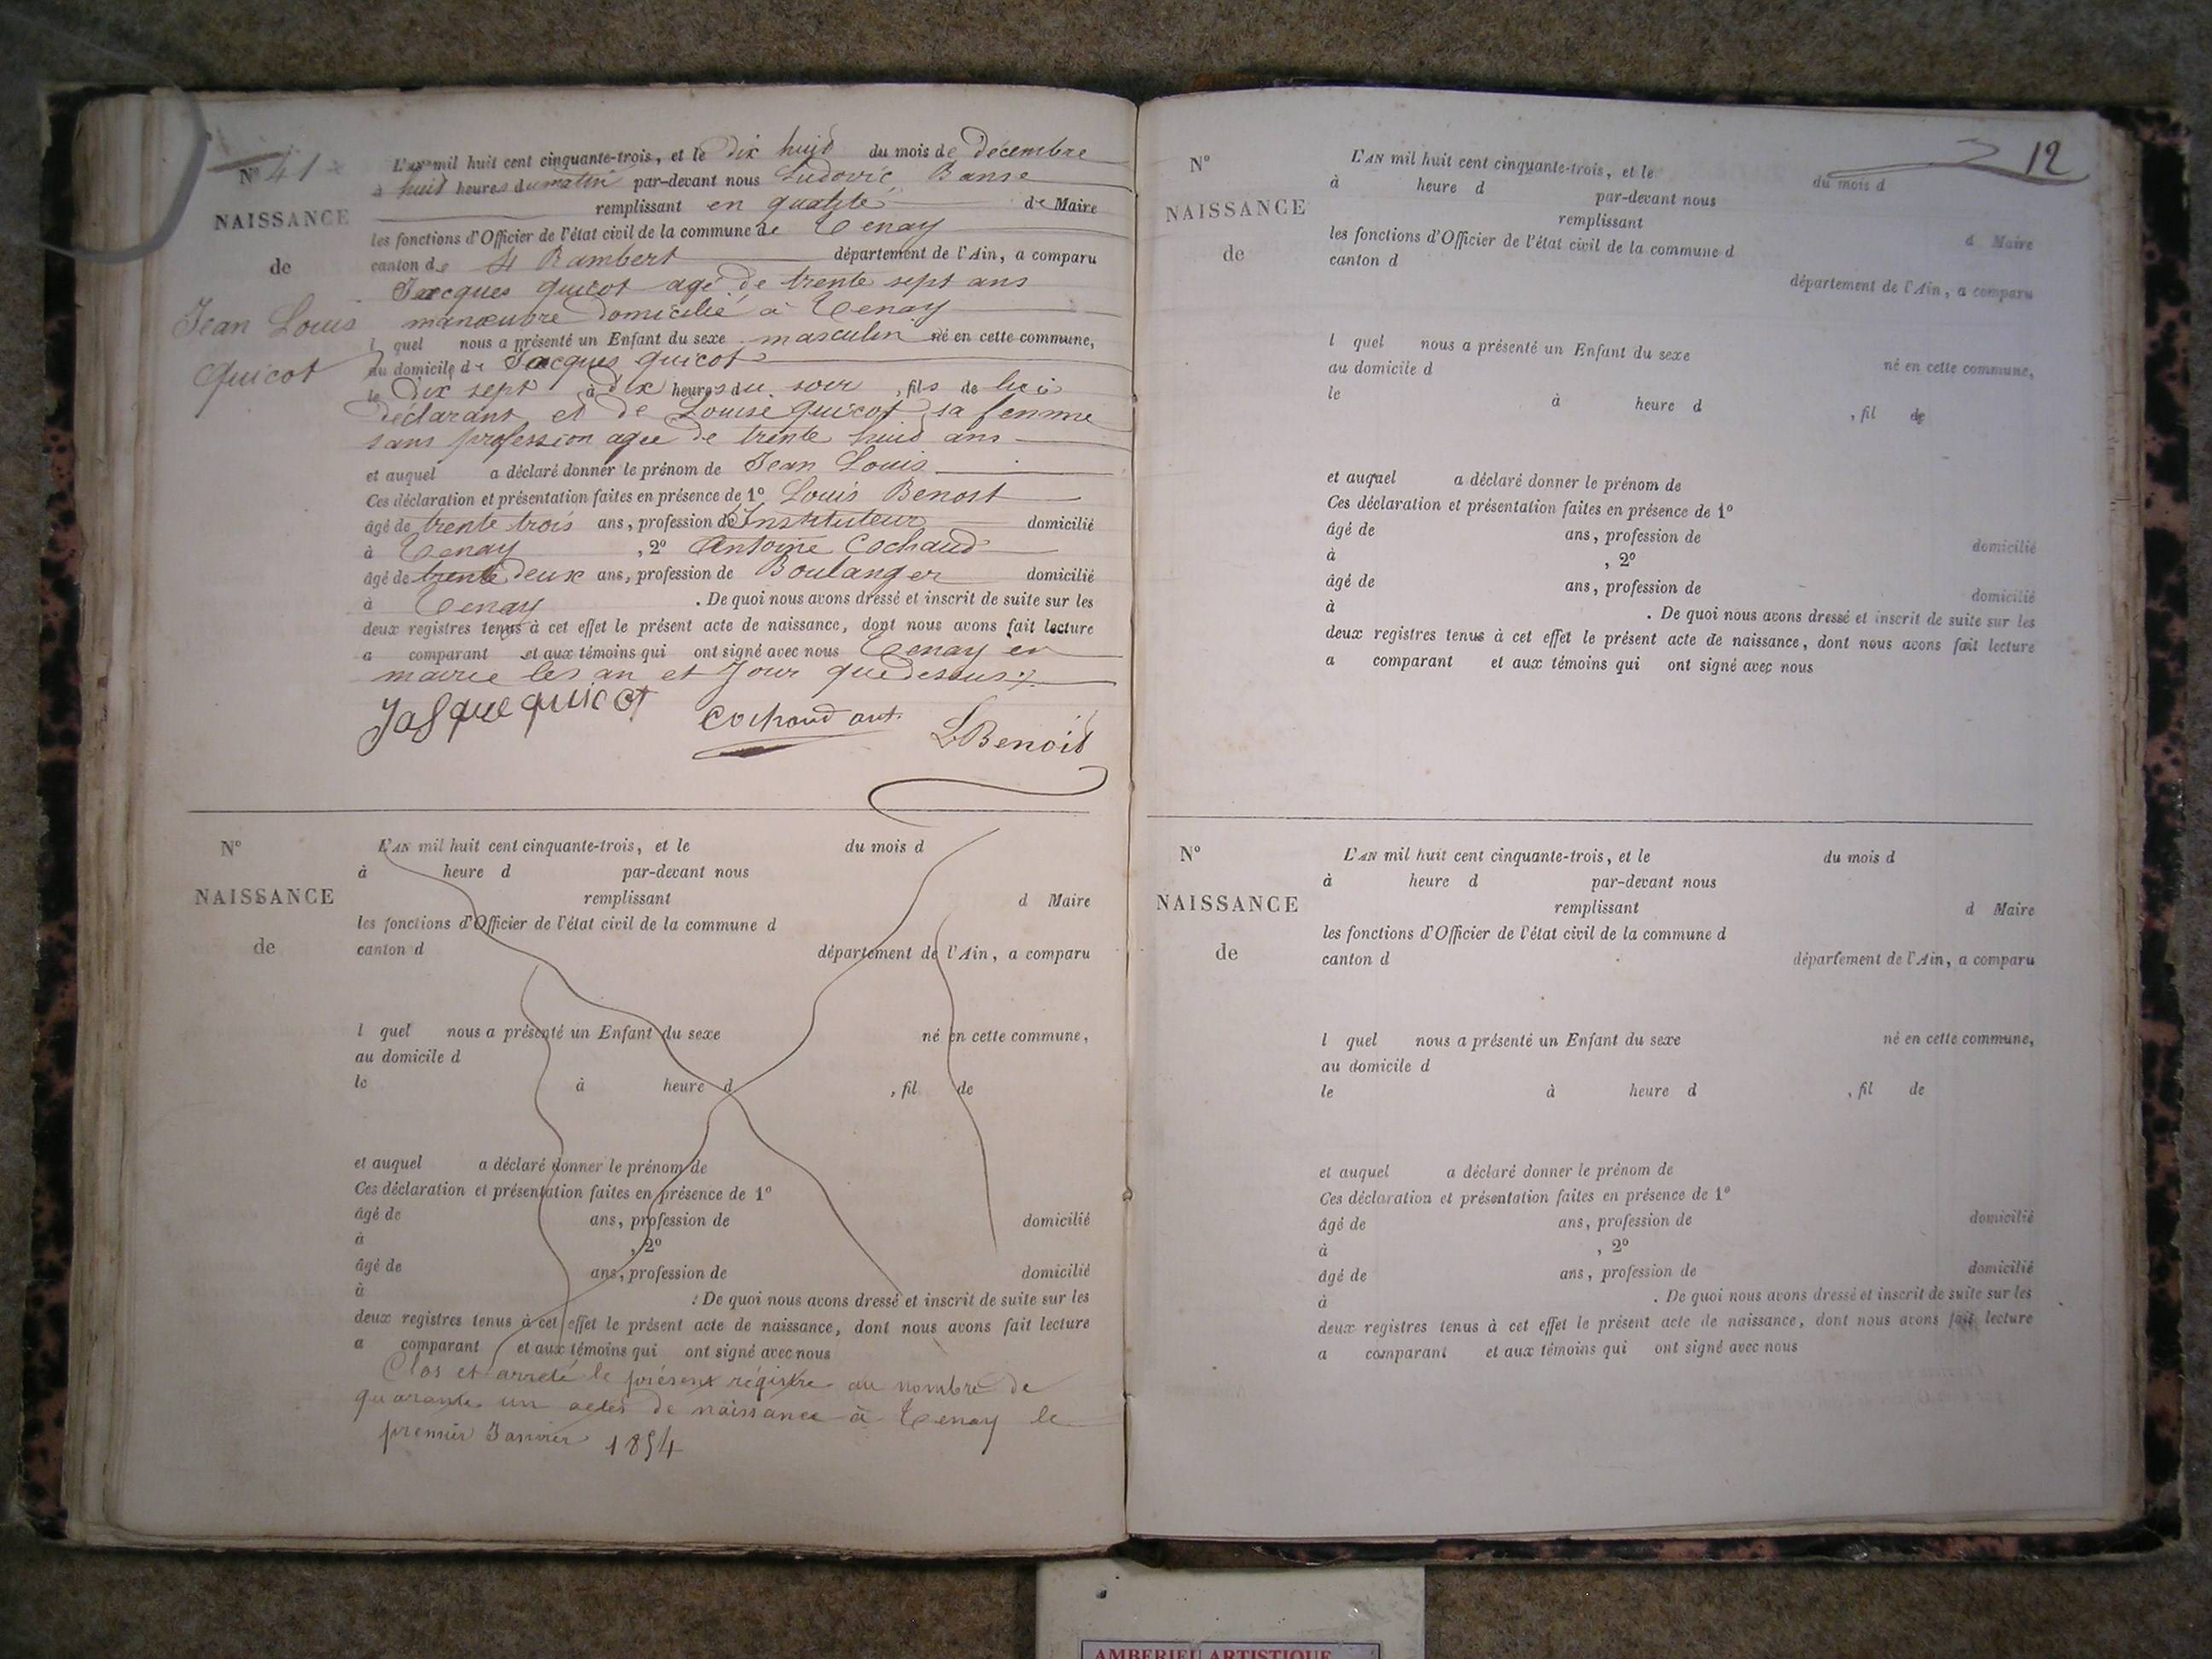 N° 41
NAISSANCE
de
Jean Louis
Quicot
L'AN mil huit cent cinquante-trois, et le dix huit du mois de décembre
à huit heures du matin par-devant nous Ludovic Banse
remplissant en qualité de Maire
les fonctions d'Officier de l'état civil de la commune de Tenay
canton de St Rambert département de l'Ain, a comparu
Jacques Quicot agé de trente sept ans
manœuvre domicilié à Tenay
l quel nous a présenté un Enfant du sexe masculin né en cette commune,
au domicile de Jacques Quicot
le dix sept à dix heures du soir, fils de lui
déclarant et de Louise Quicot sa femme
sans profession agée de trente huit ans
et auquel a déclaré donner le prénom de Jean Louis
Ces déclaration et présentation faites en présence de 1° Louis Benoit
âgé de trente trois ans, profession de Instituteur domicilié
à Tenay, 2° Antoine Cochaud
âgé de trente deux ans, profession de Boulanger domicilié
à Tenay. De quoi nous avons dressé et inscrit de suite sur les
deux registres tenus à cet effet le présent acte de naissance, dont nous avons fait lecture
a comparant et aux témoins qui ont signé avec nous Tenay en
mairie les an et Jour que dessus
Jasque quicot Cochaud ant. L Benoit
N°
NAISSANCE
de
L'AN mil huit cent cinquante-trois, et le du mois d
à heure d par-devant nous
remplissant d Maire
les fonctions d'Officier de l'état civil de la commune d
canton d département de l'Ain, a comparu
l quel nous a présenté un Enfant du sexe né en cette commune,
au domicile d
le à heure d , fil de
et auquel a déclaré donner le prénom de
Ces déclaration et présentation faites en présence de 1°
âgé de ans, profession de domicilié
à , 2°
âgé de ans, profession de domicilié
à . De quoi nous avons dressé et inscrit de suite sur les
deux registres tenus à cet effet le présent acte de naissance, dont nous avons fait lecture
a comparant et aux témoins qui ont signé avec nous
Clos et arreté le présent régistre au nombre de
quarante un actes de naissance à Tenay le
premier Janvier 1854
12
N°
NAISSANCE
de
L'AN mil huit cent cinquante-trois, et le du mois d
à heure d par-devant nous
remplissant d Maire
les fonctions d'Officier de l'état civil de la commune d
canton d département de l'Ain, a comparu
l quel nous a présenté un Enfant du sexe né en cette commune,
au domicile d
le à heure d , fil de
et auquel a déclaré donner le prénom de
Ces déclaration et présentation faites en présence de 1°
âgé de ans, profession de domicilié
à , 2°
âgé de ans, profession de domicilié
à . De quoi nous avons dressé et inscrit de suite sur les
deux registres tenus à cet effet le présent acte de naissance, dont nous avons fait lecture
a comparant et aux témoins qui ont signé avec nous
N°
NAISSANCE
de
L'AN mil huit cent cinquante-trois, et le du mois d
à heure d par-devant nous
remplissant d Maire
les fonctions d'Officier de l'état civil de la commune d
canton d département de l'Ain, a comparu
l quel nous a présenté un Enfant du sexe né en cette commune,
au domicile d
le à heure d , fil de
et auquel a déclaré donner le prénom de
Ces déclaration et présentation faites en présence de 1°
âgé de ans, profession de domicilié
à , 2°
âgé de ans, profession de domicilié
à . De quoi nous avons dressé et inscrit de suite sur les
deux registres tenus à cet effet le présent acte de naissance, dont nous avons fait lecture
a comparant et aux témoins qui ont signé avec nous
AMBERIEU ARTISTIQUE